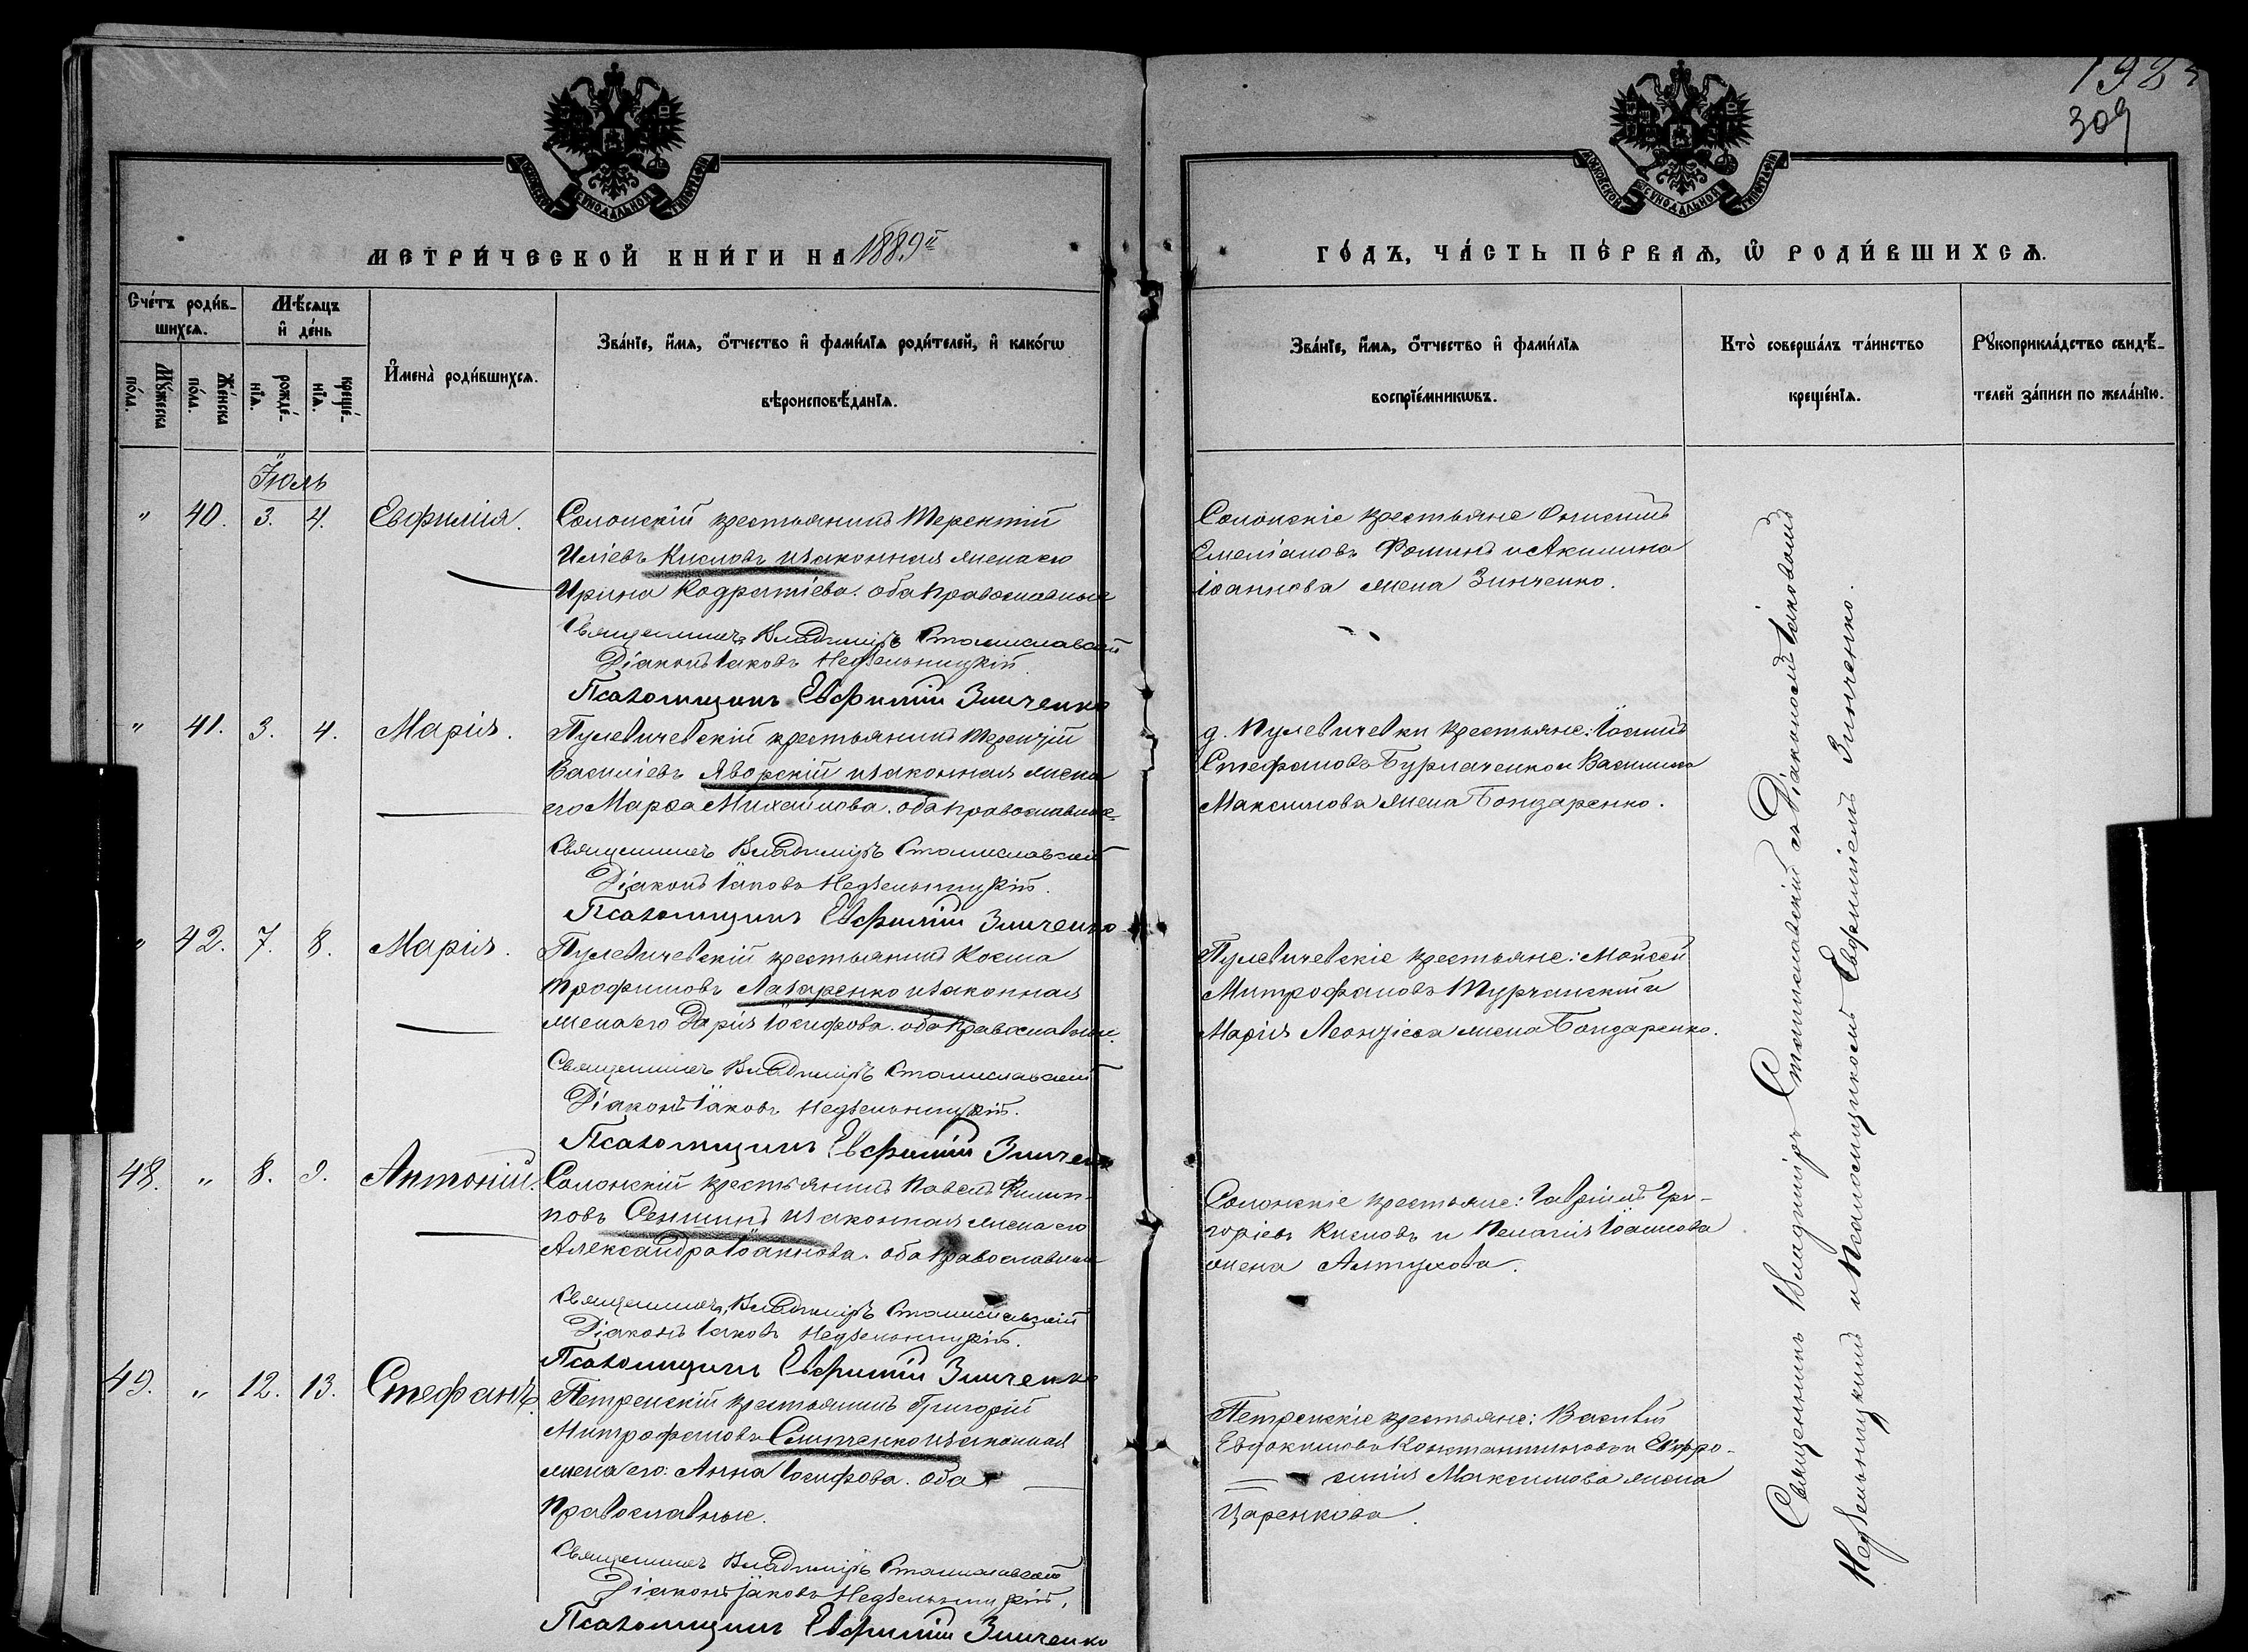 198
309
МОСКОВСКОЙ СУНОДАЛЬНОЙ ТИПОГРАФІИ
МОСКОВСКОЙ СУНОДАЛЬНОЙ ТИПОГРАФІИ
МЕТРИ́ЧЕСКОЙ КНИ́ГИ НА 1889й
ГО́ДЪ, ЧА́СТЬ ПЕ́РВАѦ, Ѡ҆ РОДИ́ВШИХСѦ.
Сче́тъ роди́в-
шихсѧ.
Мꙋ́жеска по́ла.
Же́нска по́ла.
Мѣ́сѧцъ
и҆ де́нь
рожде́-нїѧ.
креще́-нїѧ.
И҆мена̀ роди́вшихсѧ.
Зва́нїе, и҆́мѧ, ѻ҆́тчество и҆ фами́лїѧ роди́телей, и҆ како́гѡ
вѣроисповѣ́данїѧ.
Зва́нїе, и҆́мѧ, ѻ҆́тчество и҆ фами́лїѧ
воспрїе́мникѡвъ.
Кто̀ соверша́лъ та́инство
креще́нїѧ.
Рꙋкоприкла́дство свидѣ́-
телей за́писи по жела́нїю.
Іюль
" 40. 3. 4. Евфимія.
Солонскій крестьянинъ Терентій
Иліевъ Кисловъ и законная жена его
Ирина Кодратіева. оба православные
Священникъ Владиміръ Станиславскій
Діаконъ Іаковъ Недѣльницкій
Псаломщикъ Евфимій Зинченко
Солонскіе крестьяне Онисимъ
Емеліановъ Фоминъ и Акилина
Іоаннова жена Зинченко.
" 41. 3. 4. Марія.
Пулевичевскій крестьянинъ Терентій
Василіевъ Яворскій и законная жена
его Марѳа Михайлова. оба православные
Священникъ Владиміръ Станиславскій
Діаконъ Іаковъ Недѣльницкій.
Псаломщикъ Евфимій Зинченко
д. Пулевичевки крестьяне: Іосифъ
Стефановъ Бурлаченко и Василиса
Максимова жена Бондаренко.
" 42. 7. 8. Марія.
Пулевичевскій крестьянинъ Косма
Трофимовъ Лазаренко и законная
жена его Дарія Іосифова. оба православные.
Священникъ Владиміръ Станиславскій
Діаконъ Іаковъ Недѣльницкій.
Псаломщикъ Евфимій Зинченко
Пулевичевскіе крестьяне: Моисей
Митрофановъ Турчанскій и
Марія Леонтіева жена Бондаренко.
48. " 8. 9. Антоній.
Солонскій крестьянинъ Павелъ Филип-
повъ Сеншинъ и законная жена его
Александра Іоаннова. оба православные
Священникъ Владиміръ Станиславскій
Діаконъ Іаковъ Недѣльницкій.
Псаломщикъ Евфимій Зинченко
Солонскіе крестьяне: Гавріилъ Гри-
горіевъ Кисловъ и Пелагія Іоаннова
жена Алтухова.
49. " 12. 13. Стефанъ.
Петренскій крестьянинъ Григорій
Митрофановъ Слипченко и законная
жена его: Анна Іосифова. оба
православные.
Священникъ Владиміръ Станиславскій
Діаконъ Іаковъ Недѣльницкій.
Псаломщикъ Евфимій Зинченко
Петренскіе крестьяне: Василій
Евдокимовъ Константиновъ и Евфро-
синія Максимова жена
Царенкова.
Священникъ Владиміръ Станиславскій съ Діакономъ Іаковомъ
Недѣльницкимъ и Псаломщикомъ Евфиміемъ Зинченко.